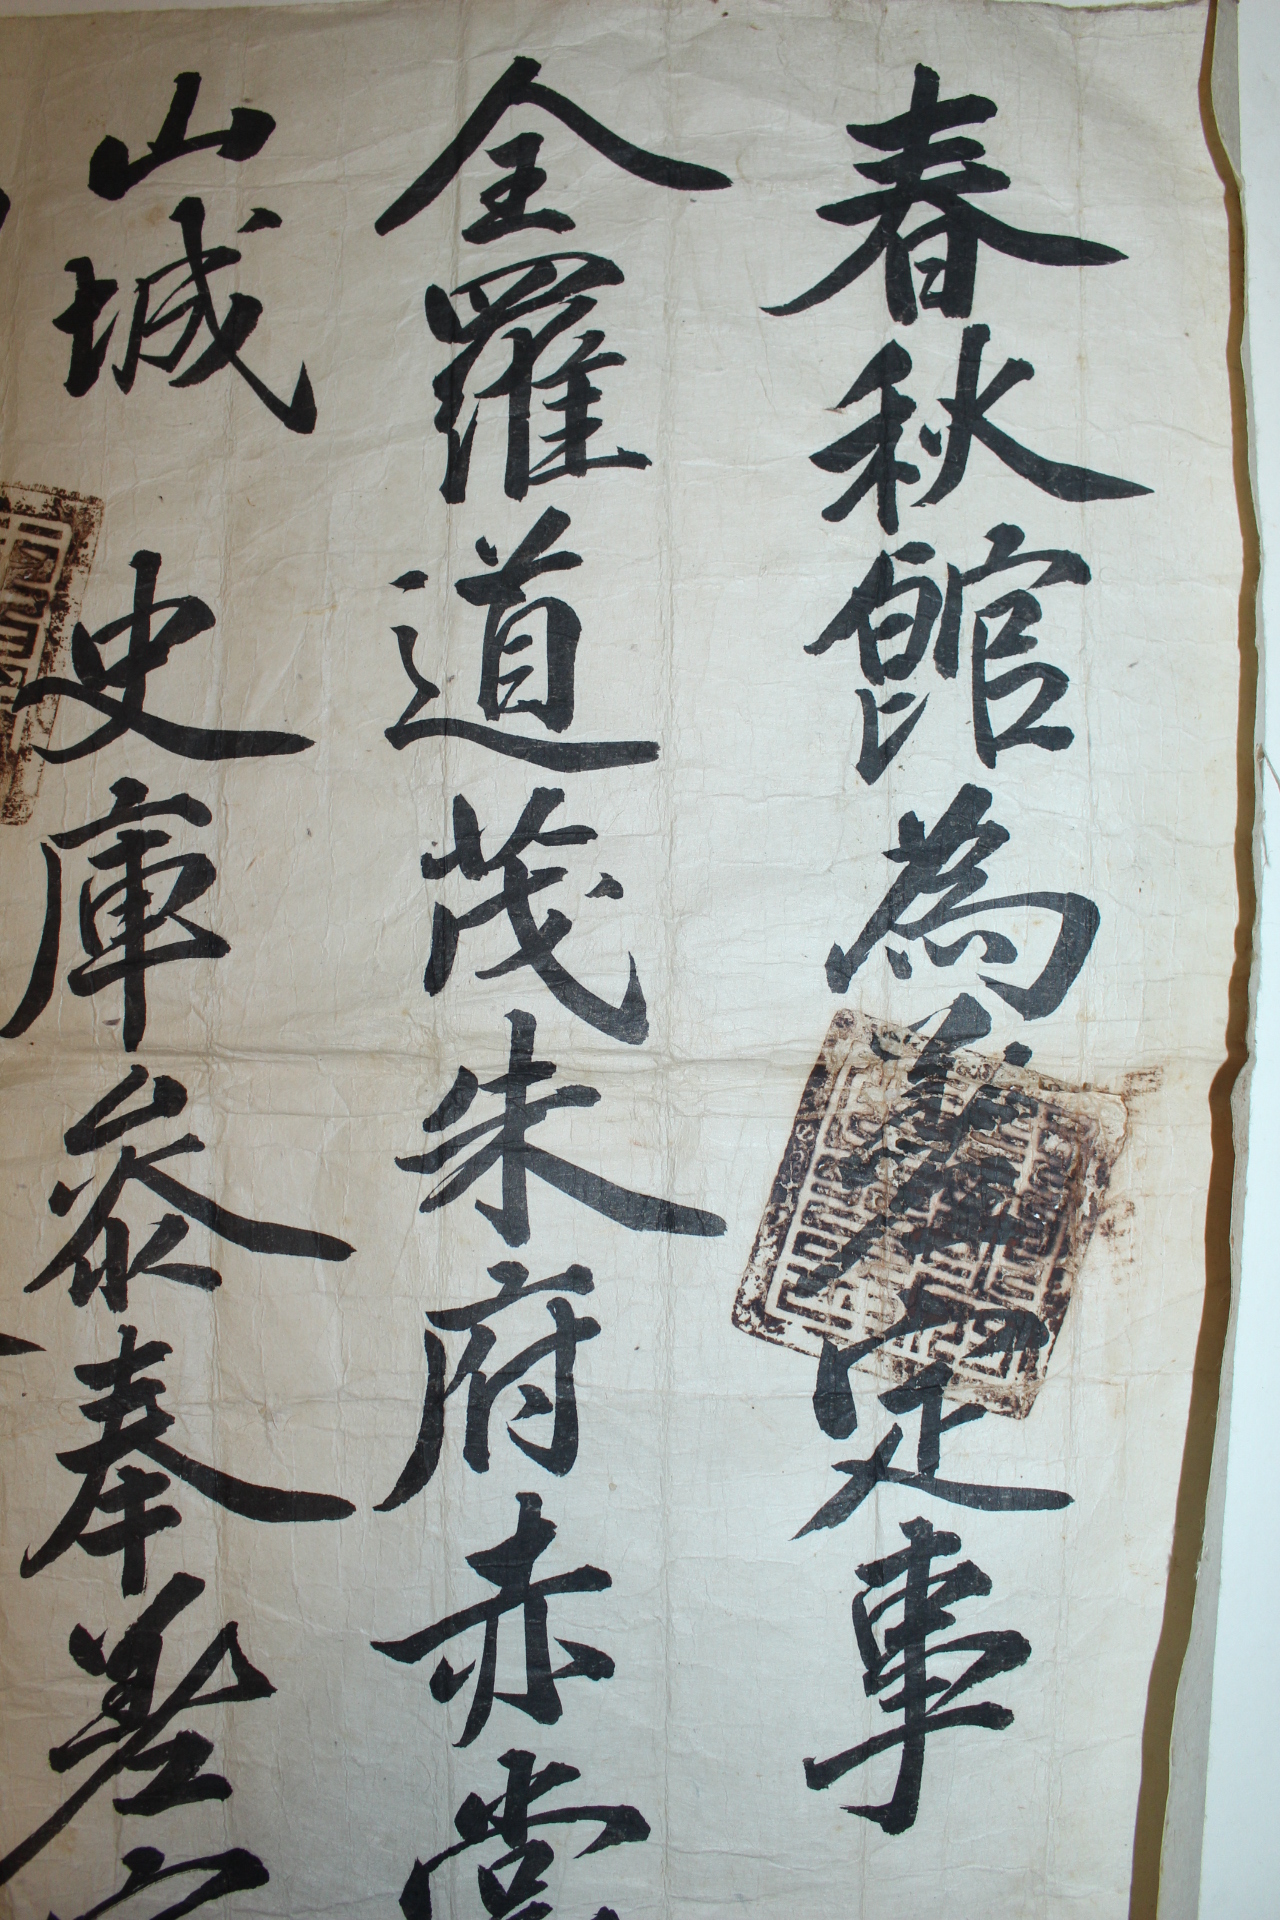 春秋館為差定事
全羅道茂朱府赤裳
山城 史庫叅奉差定